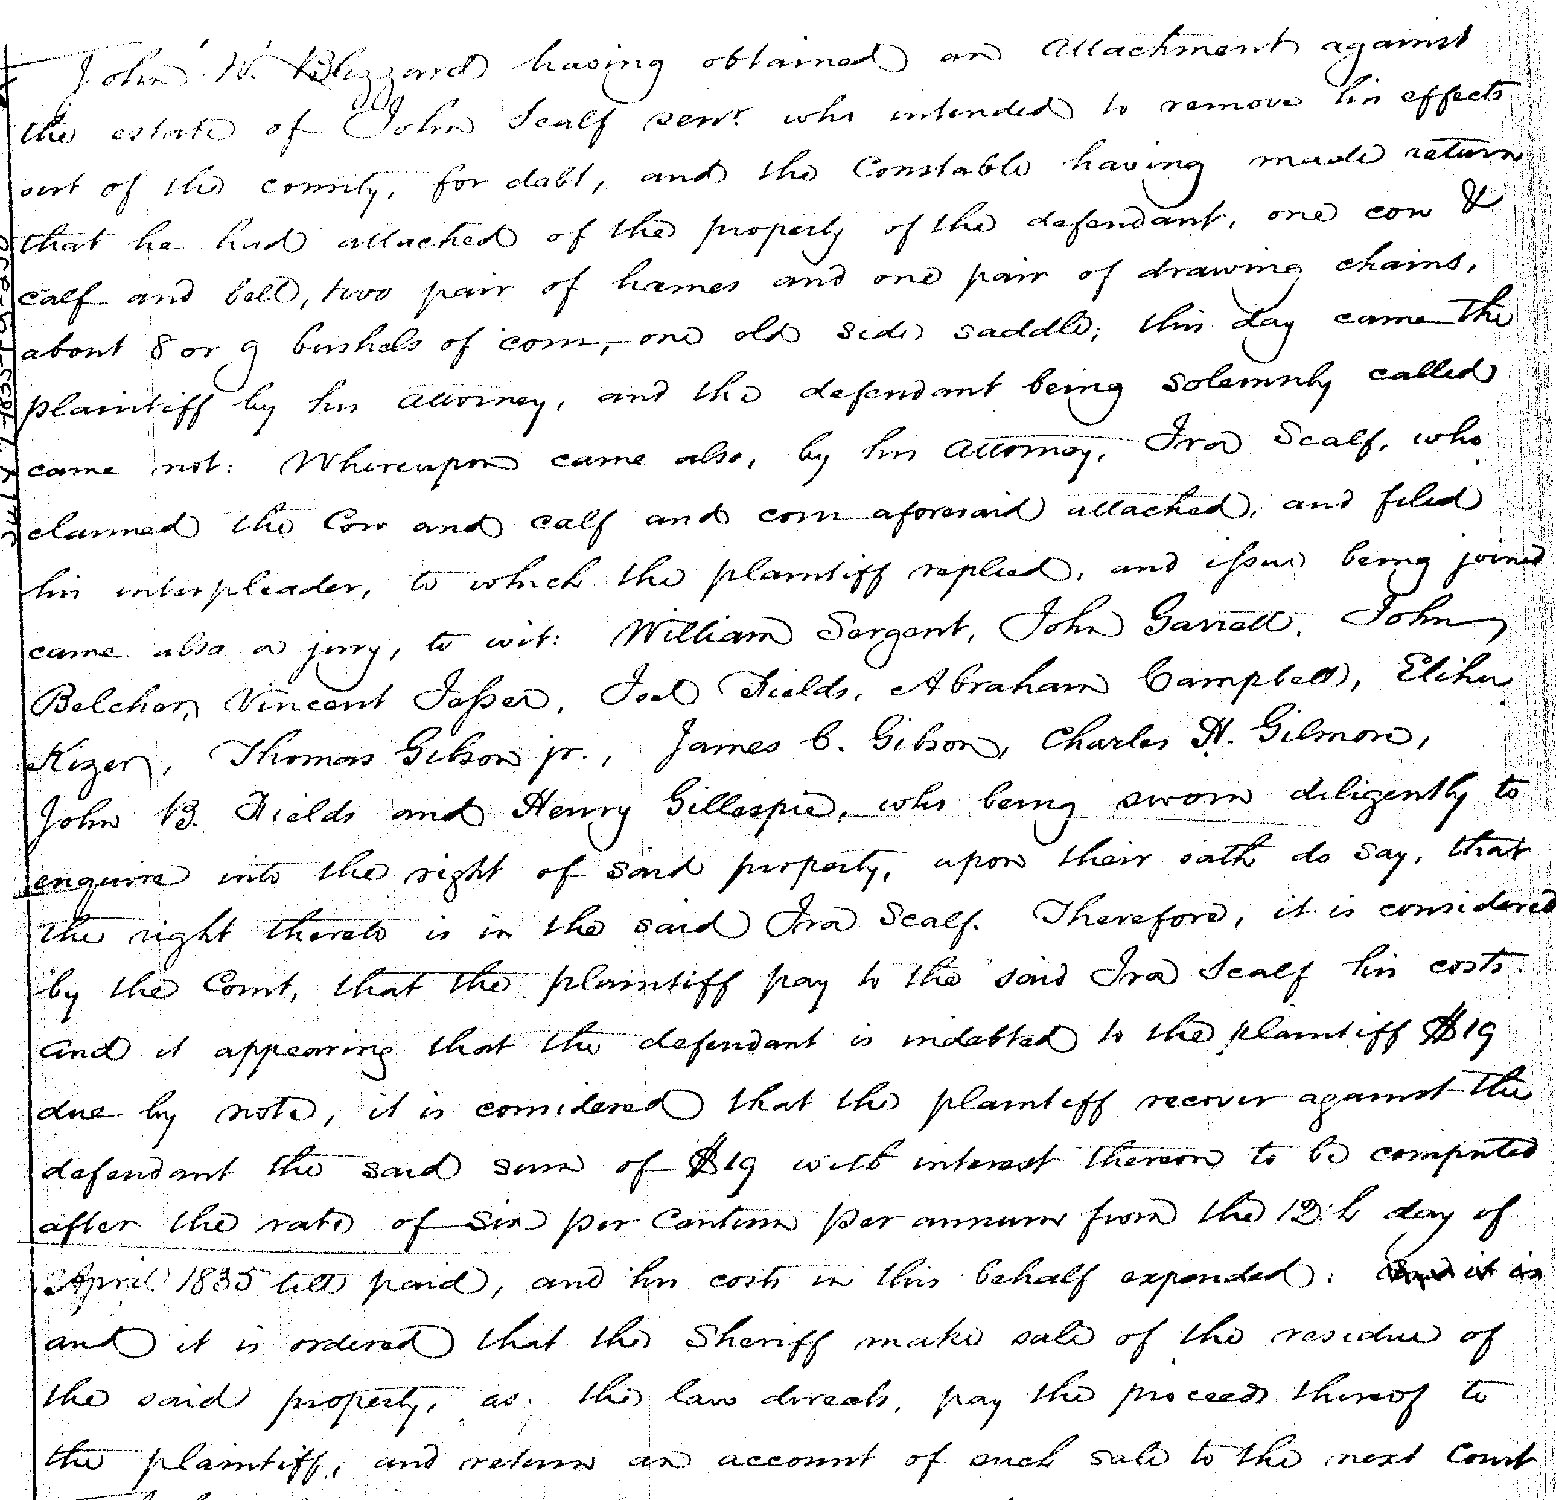 John W. Blizzard having obtained an attachment against
the estate of John Scalf senr. who intended to remove his effects
out of the county, for debt, and the Constable having made return
that he had attached of the property of the defendant, one cow &
calf and bell, two pair of hames and one pair of drawing chains,
about 8 or 9 bushels of corn, one old side saddle; this day came the
plaintiff by his attorney, and the defendant being solemnly called
came not: Whereupon came also, by his attorney, Ira Scalf, who
claimed the Cow and calf and corn aforesaid attached, and filed
his interpleader, to which the plaintiff replied, and issue being joined
came also a jury, to wit: William Sergent, John Garrett, John
Belcher, Vincent Jesser, Joel Fields, Abraham Campbell, Elihu
Kizer, Thomas Gibson jr., James C. Gibson, Charles H. Gilmore,
John B. Fields and Henry Gillespie, who being sworn diligently to
enquire into the right of said property, upon their oath do say, that
the right thereto is in the said Ira Scalf. Therefore, it is considered
by the Court, that the plaintiff pay to the said Ira Scalf his costs.
And it appearing that the defendant is indebted to the plaintiff $19
due by note, it is considered that the plaintiff recover against the
defendant the said sum of $19 with interest thereon to be computed
after the rate of Six per Centum per annum from the 12th day of
April 1835 till paid, and his costs in this behalf expended: and it is
and it is ordered that the Sheriff make sale of the residue of
the said property, as the law directs, pay the proceeds thereof to
the plaintiff, and return an account of such sale to the next Court